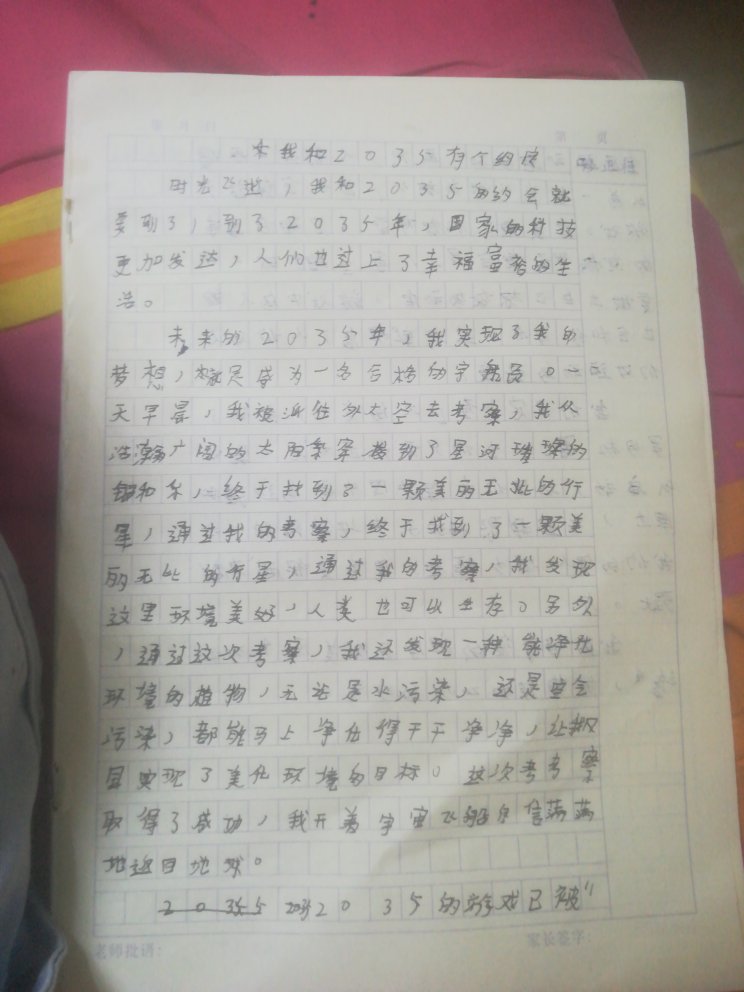 我和2035有个约定
时光飞逝，我和2035的约会就
要到了，到了2035年，国家的科技
更加发达，人们也过上了幸福富裕的生
活。
未来的2035年，我实现了我的
梦想，就是成为一名合格的宇航员。一
天早晨，我被派往外太空去考察，我从
浩瀚广阔的太阳系穿梭到了星河璀璨的
银和系，终于找到了一颗美丽无比的行
星，通过我的考察，终于找到了一颗美
丽无比的行星，通过我的考察，我发现
这里环境美好，人类也可以生存。另外
，通过这次考察，我还发现一种能净化
环境的植物，无论是水污染，还是空气
污染，都能马上净化得干干净净，让
实现了美化环境的目标。这次考考察
取得了成功，我开着宇宙飞船自信满满
地返回地球。
2035的游戏已被“
老师批语：
家长签字：